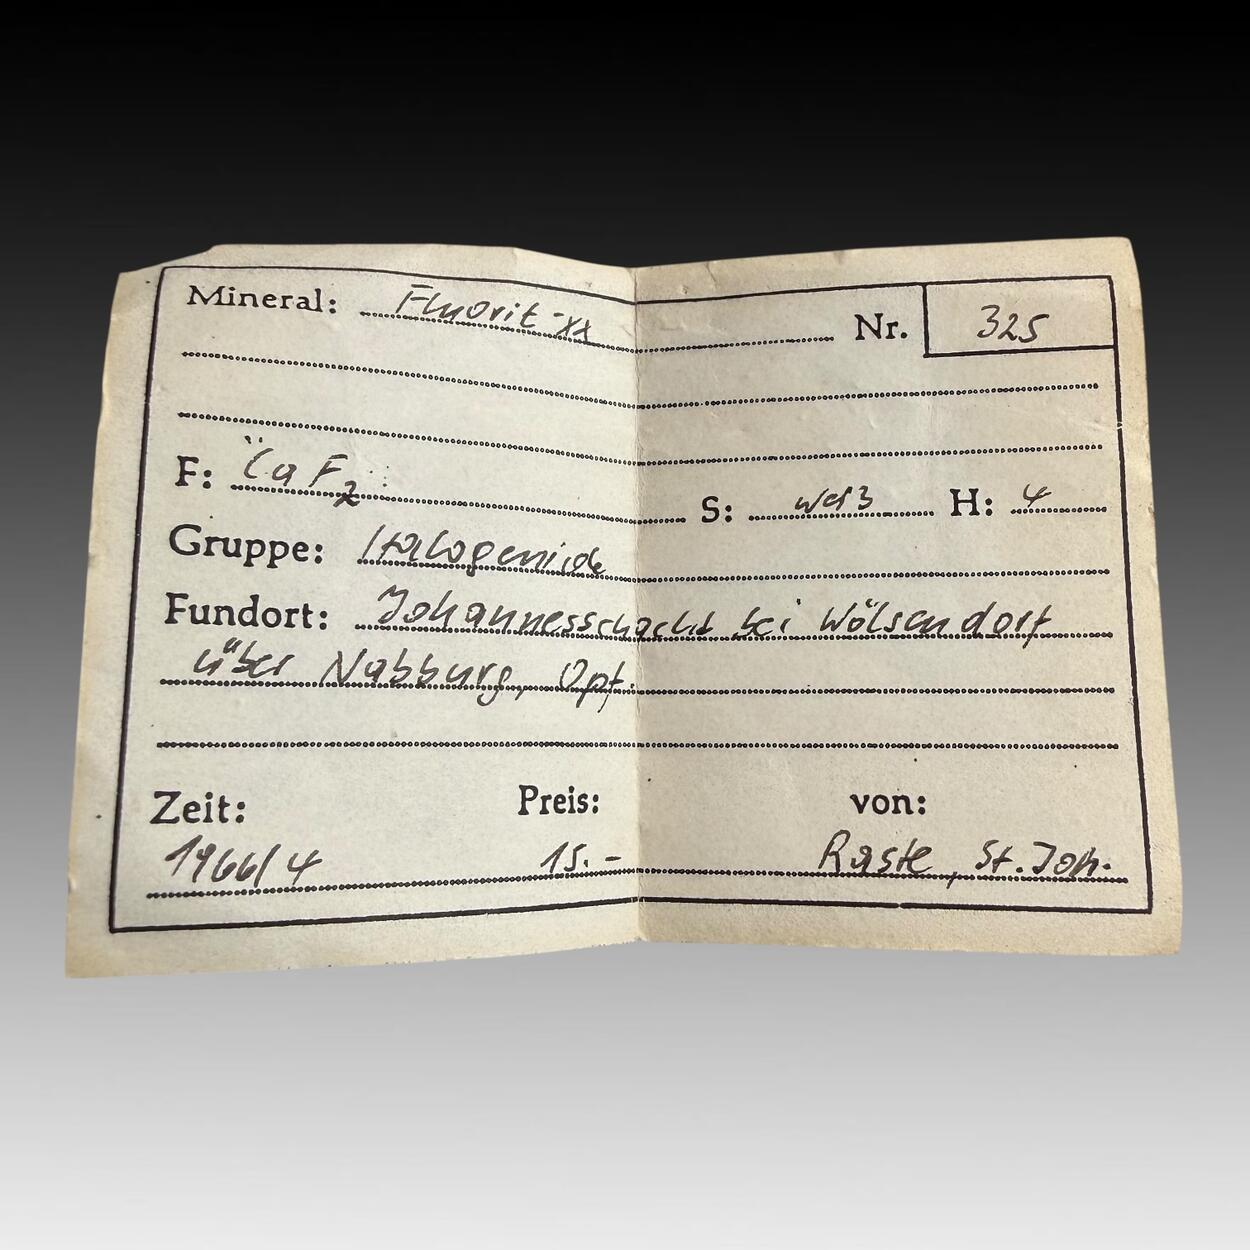 Mineral: Fluorit-xx Nr. 325
F: C̈aF₂ S: weiß H: 4
Gruppe: Halogenide
Fundort: Johannesschacht bei Wölsendorf
über Nabburg, Opf.
Zeit: Preis: von:
1966/4 15.- Raste, St. Joh.